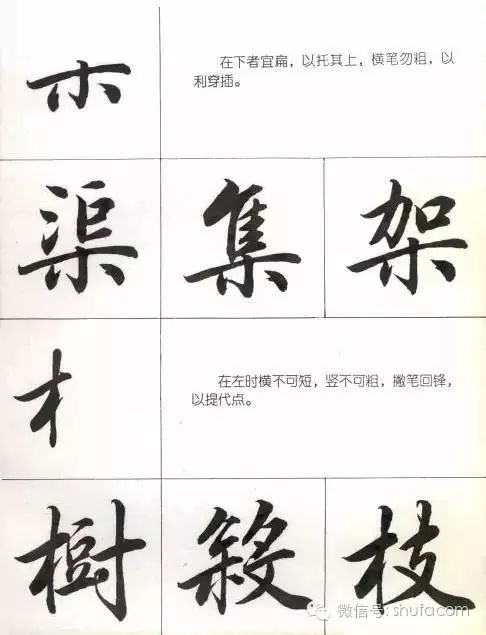 木
在下者宜扁，以托其上，横笔勿粗，以
利穿插。
渠 集 架
木
在左时横不可短，竖不可粗，撇笔回锋，
以提代点。
樹 敍 枝
微信号: shufacom